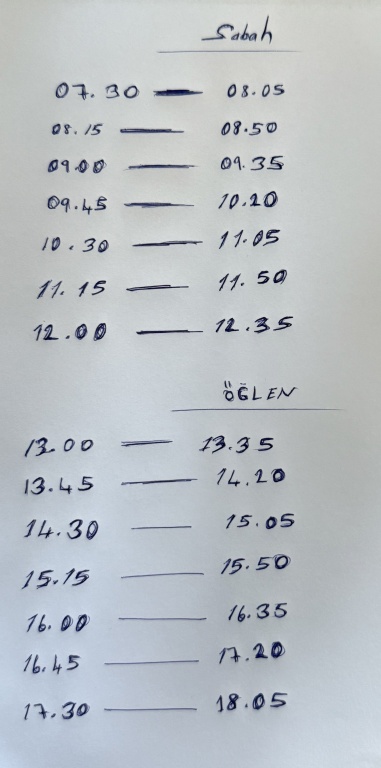 Sabah
07.30 — 08.05
08.15 — 08.50
09.00 — 09.35
09.45 — 10.20
10.30 — 11.05
11.15 — 11.50
12.00 — 12.35
ÖĞLEN
13.00 — 13.35
13.45 — 14.20
14.30 — 15.05
15.15 — 15.50
16.00 — 16.35
16.45 — 17.20
17.30 — 18.05